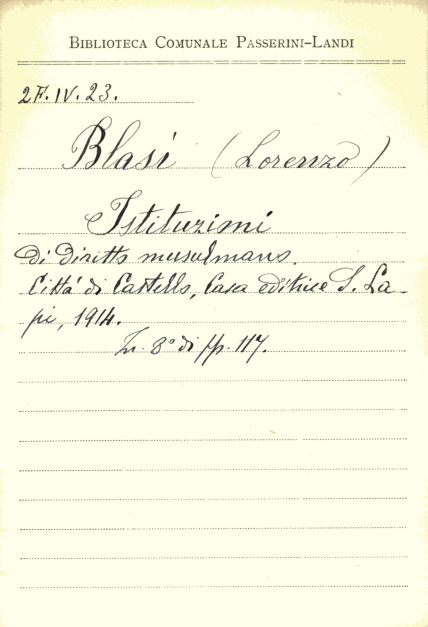 BIBLIOTECA COMUNALE PASSERINI-LANDI
2F.IV.23.
Blasi (Lorenzo)
Istituzioni
di diritto musulmano.
Città di Castello, Casa editrice S. La-
pi, 1914.
In. 8° di pp. 117.